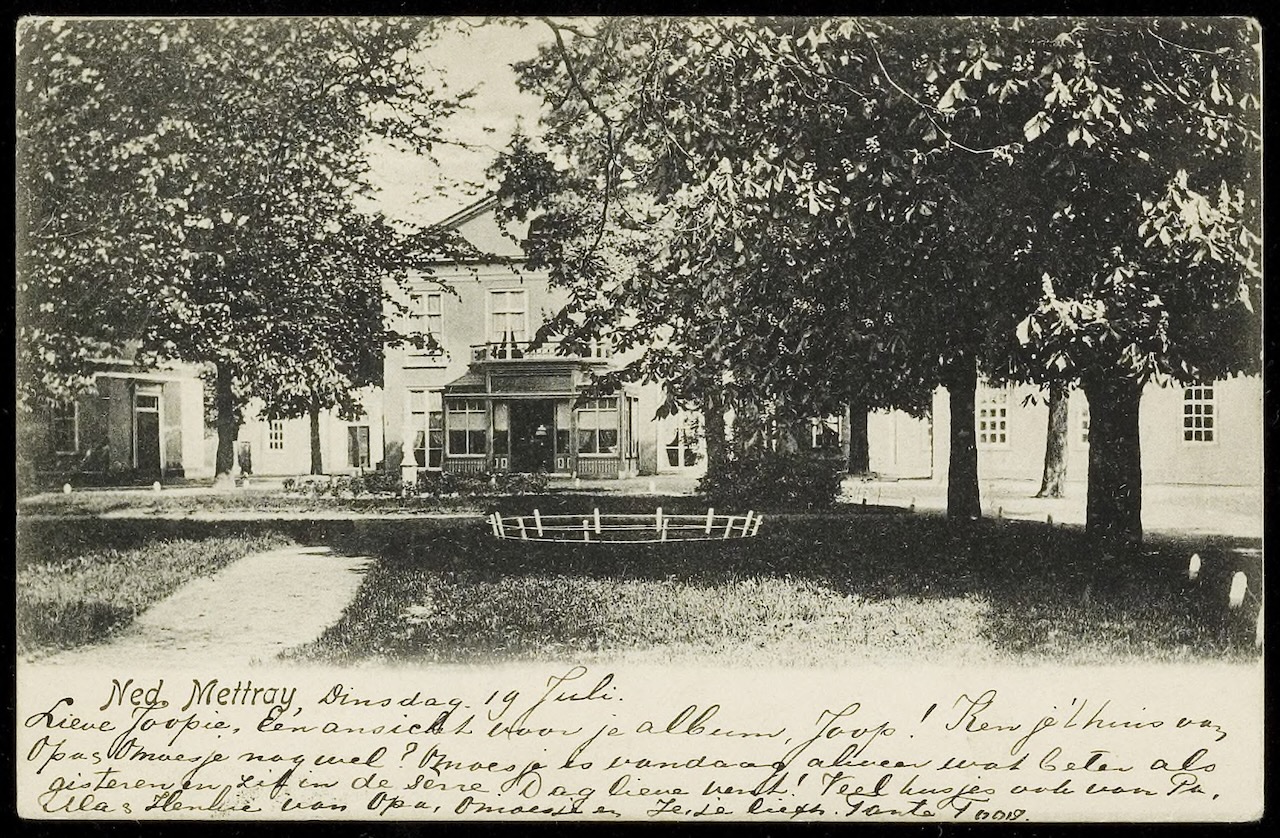 Ned. Mettray, Dinsdag. 19 Juli.
Lieve Joopie, Een ansicht voor je album, Joop! Ken je 't huis van
Opa & Omoesje nog wel? Omoesje is vandaag alweer wat beter als
gisteren en zit in de serre. Dag lieve vent! Veel kusjes ook van Pa,
Ula & Henkie van Opa, Omoesje en Je je liefh. Tante Toos.